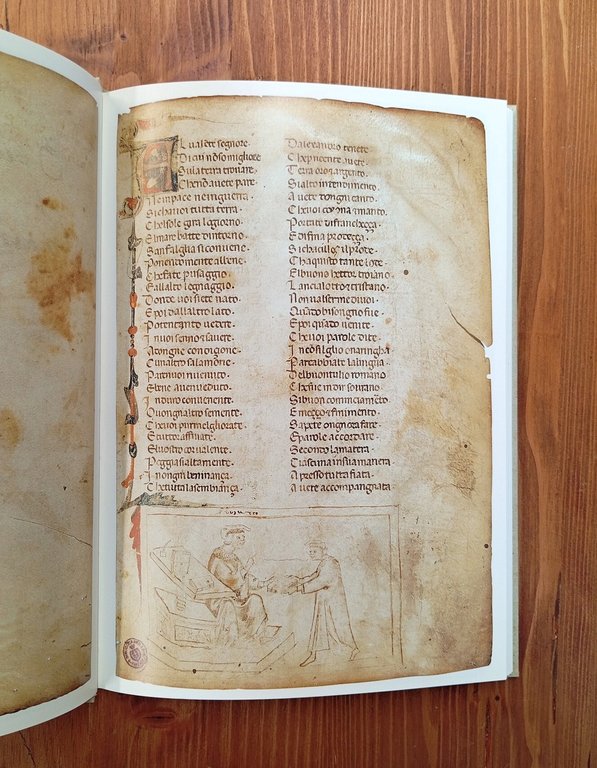 Al ualēte segnore·
Di cui nō so migliore
Sulaterra trouare·
Chenō auete pare·
Ne inpace neinguerra·
Sichauoi tutta terra·
Chelsole gira logiorno·
Elmare batte dintorno·
Sanfalglia siconuene·
Ponendomente albene·
Chefate pusaggio·
Eallalto legnaggio·
Donde uoi siete nato·
Epoi dallaltro lato·
Potentanto uedere·
Inuoi senno sauere·
Aongne condizione·
Cunaltro salamone·
Patenuoi uenuto·
Ebene aueueduto·
Induro conuenente·
Ouongnaltro semente·
Cheuoi purmelgliorate·
Etutto affinate·
Eluostro cor ualente·
Poggia sialtamente·
Inongni beninança·
Chetutta lasembiança·
Dalexandro tenete·
Chepneente auete·
Terra oro argento·
Sialto intendimento·
Auete dongni canto·
Cheuoi corona manto·
Portate difranchezza·
Edifina prodezza·
Sichacilles ilprode·
Chaquisto tante lode·
Elbuono hettor troiano·
Lancialotto tristano·
Non ualserme diuoi·
Quādo bisongno fue·
Epoi quado uenite·
Cheuoi parole dite·
Incōsilglio enaringha
Parcabbiate lalingua·
Delbuontulio romano
Chefue indir sourano·
Sibuon comenciamēto·
Emezzo finimento·
Sapete ongnora fare·
Eparole accordare·
Secondo lamatera·
Ciascuna insua manera·
Apresso tutta fiata·
Auete accompangnata·